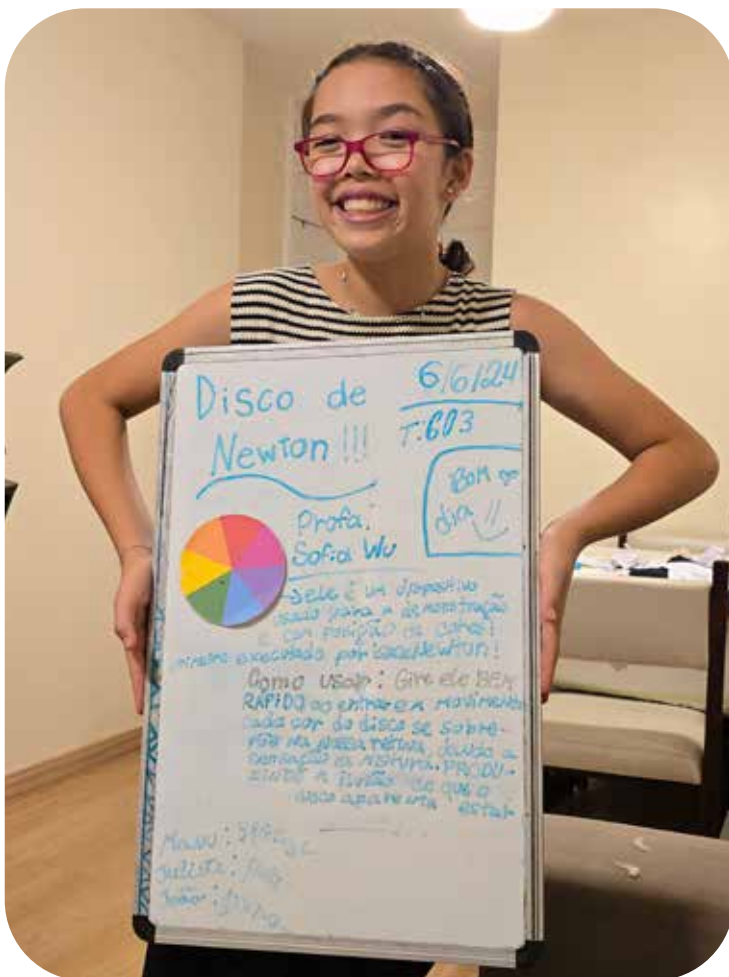 Disco de
Newton !!!
6/6/24
T:603
Bom
dia !!
Profa:
Sofia Wu
ele é um dispositivo
usado para a demonstração
e com posição de cores!
executado por isaac Newton!
Como usar: Gire ele BEM
RÁPIDO ao entrar em movimento
cada cor do disco se sobre-
põe na nossa retina, dando a
sensação de mistura. PRODU-
ZINDO A ilusão de que o
disco aparenta estar
Manu:
Julieta:
João: